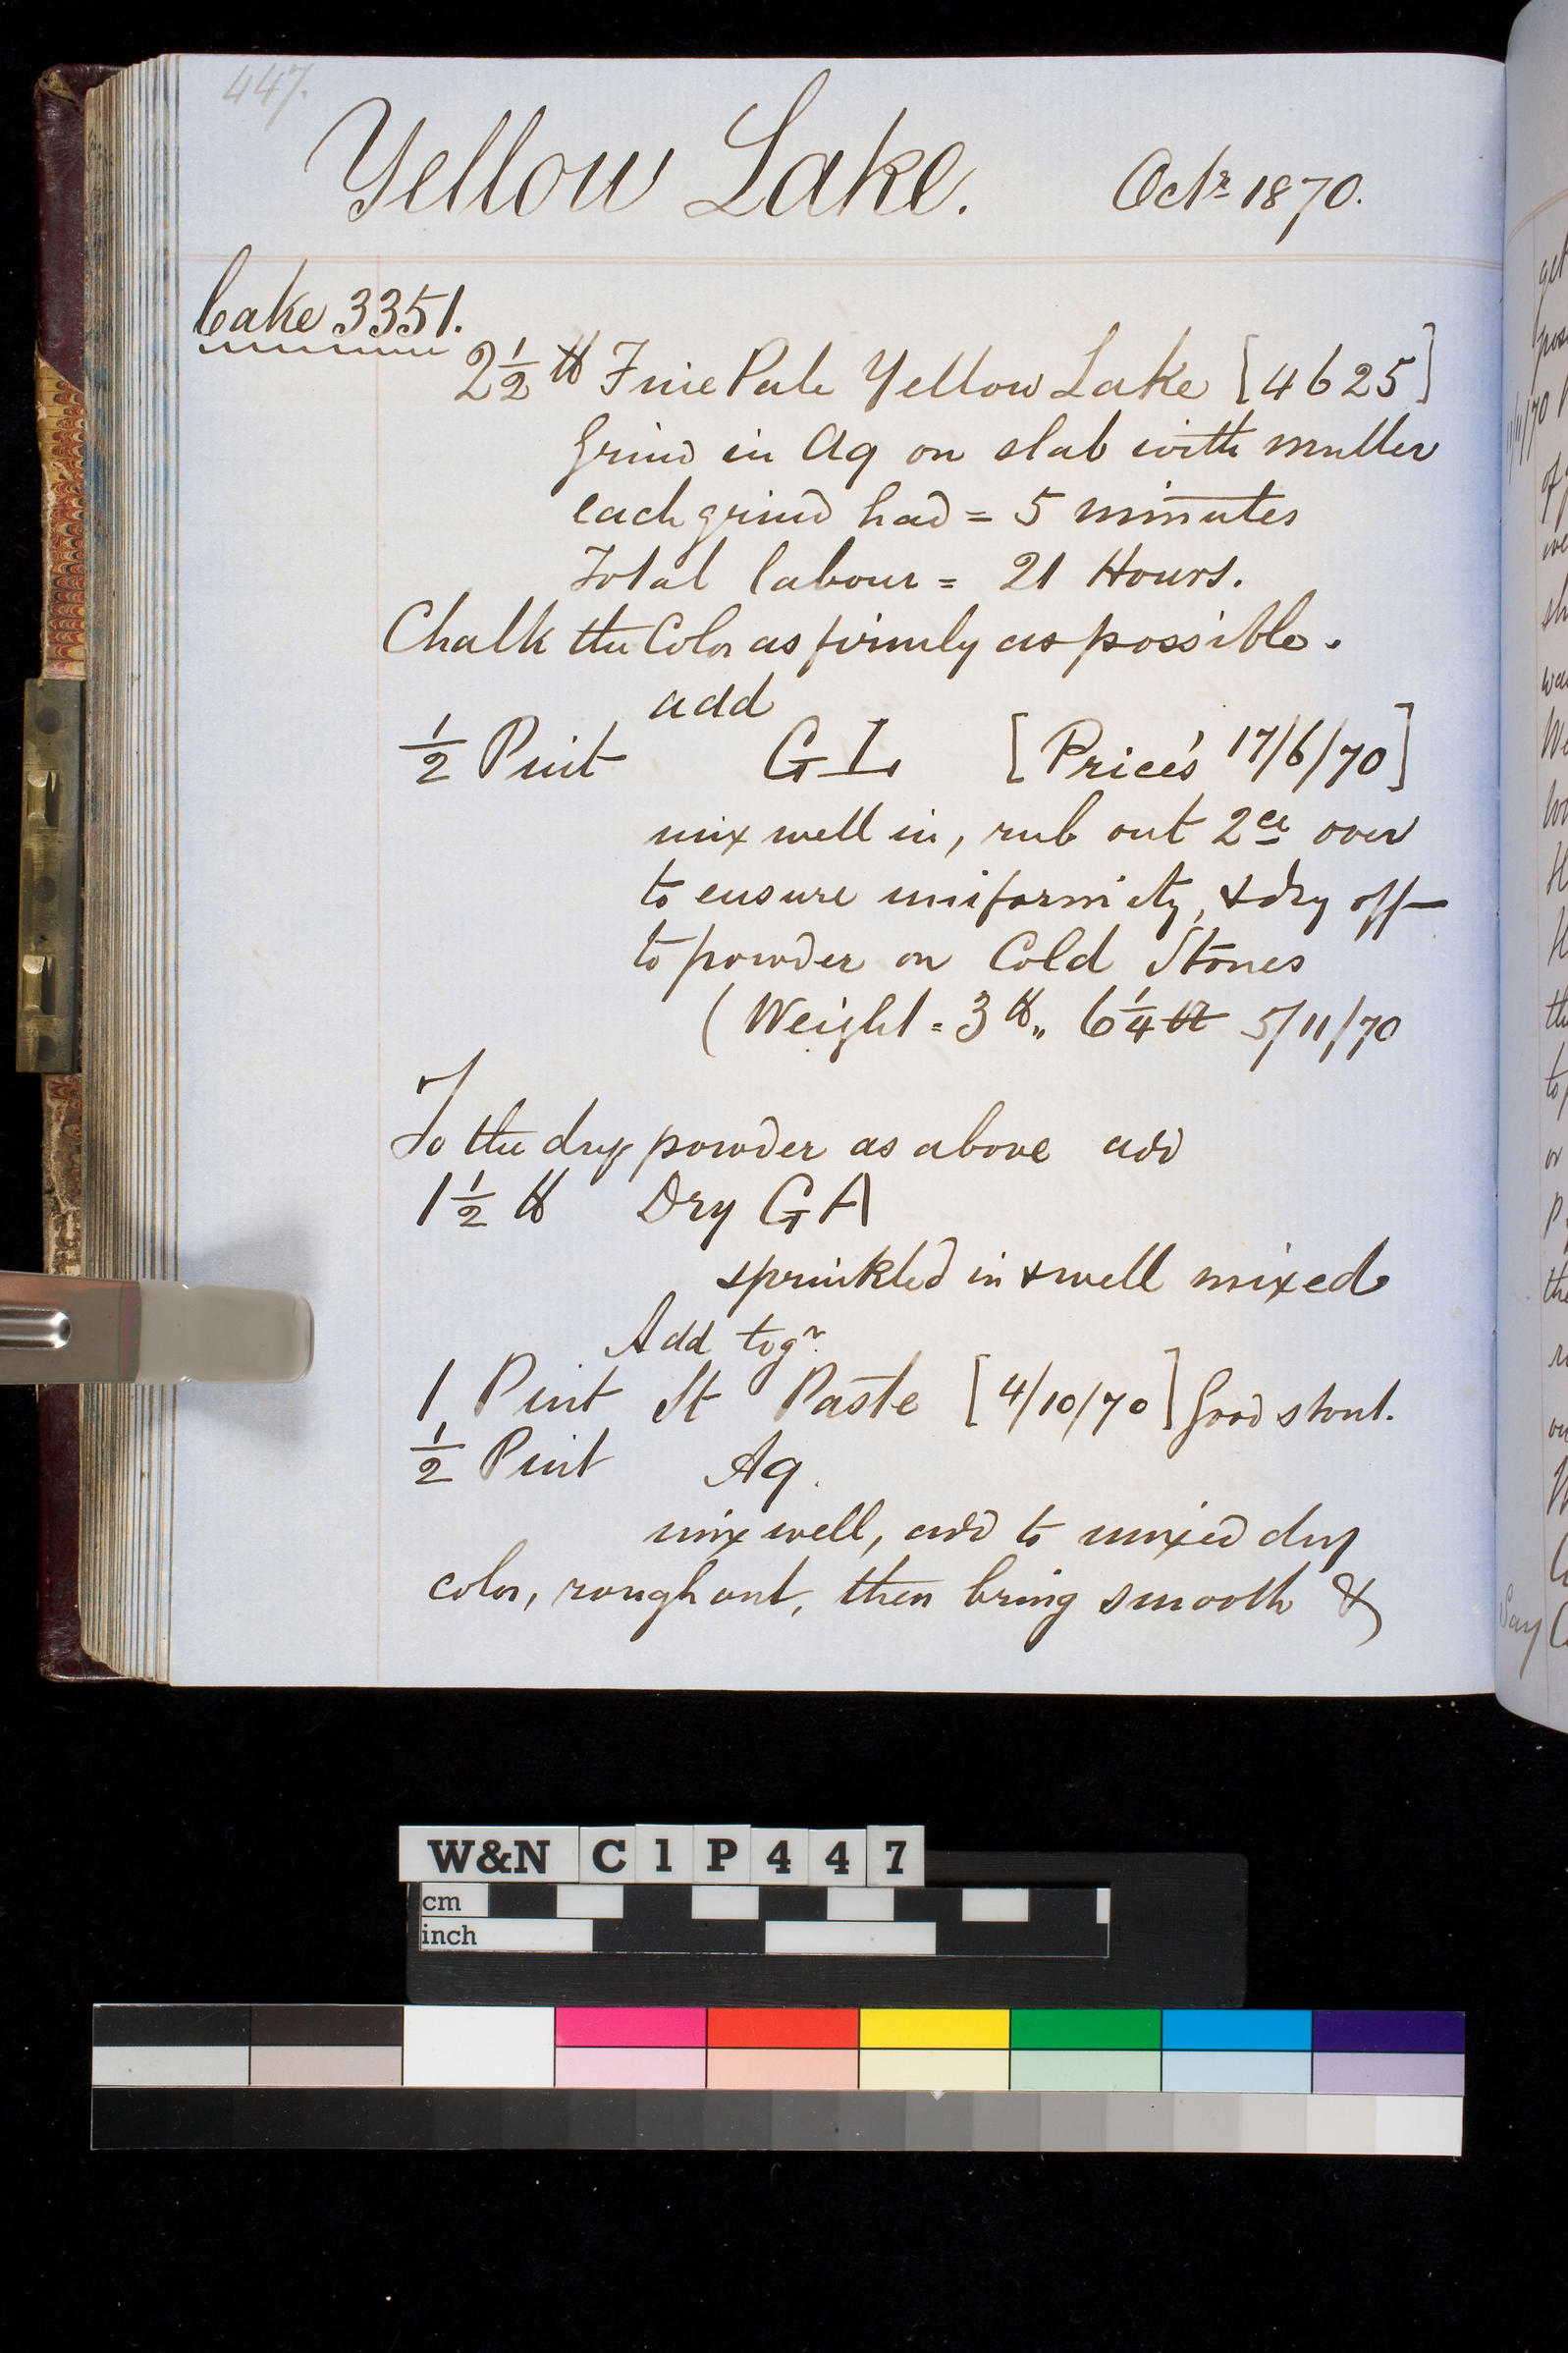 447.
Yellow Lake. Octr 1870.
Cake 3351.
2½ lb Fine Pale Yellow Lake [4625]
Grind in Aq on slab with muller
each grind had = 5 minutes
Total labour = 21 Hours.
Chalk the Color as firmly as possible.
add
½ Pint GL [Price's 17/6/70]
mix well in, rub out 2ce over
to ensure uniformity, & dry off
to powder on Cold Stones
(Weight = 3 lb,, 6¼ 5/11/70
To the dry powder as above add
1½ lb Dry GA
sprinkled in & well mixed
Add togr.
1 Pint St Paste [4/10/70] Good stout.
½ Pint Aq.
mix well, add to mixed dry
color, rough out, then bring smooth &
W&N C 1 P 4 4 7
cm
inch